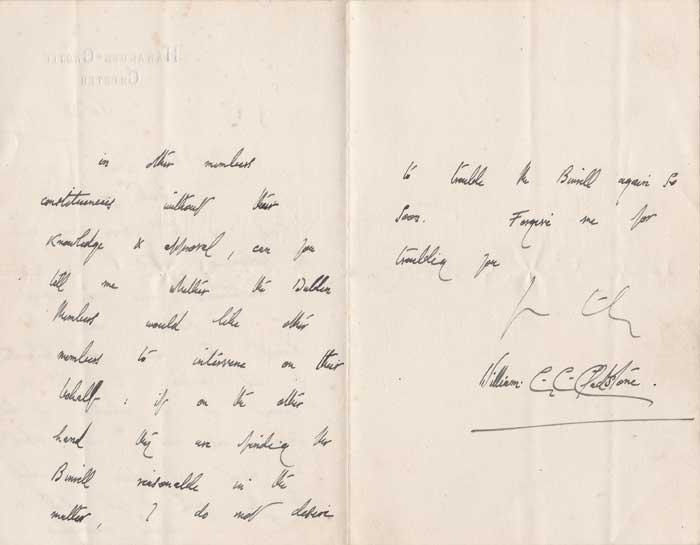 HAWARDEN CASTLE
CHESTER
in other members
constituencies without their
knowledge & approval, can you
tell me whether the Dublin
Members would like other
members to intervene on their
behalf : if on the other
hand they are finding Mr
Birrell reasonable in the
matter, I do not desire
to trouble Mr Birrell again so
soon. Forgive me for
troubling you
William G. C. Gladstone.